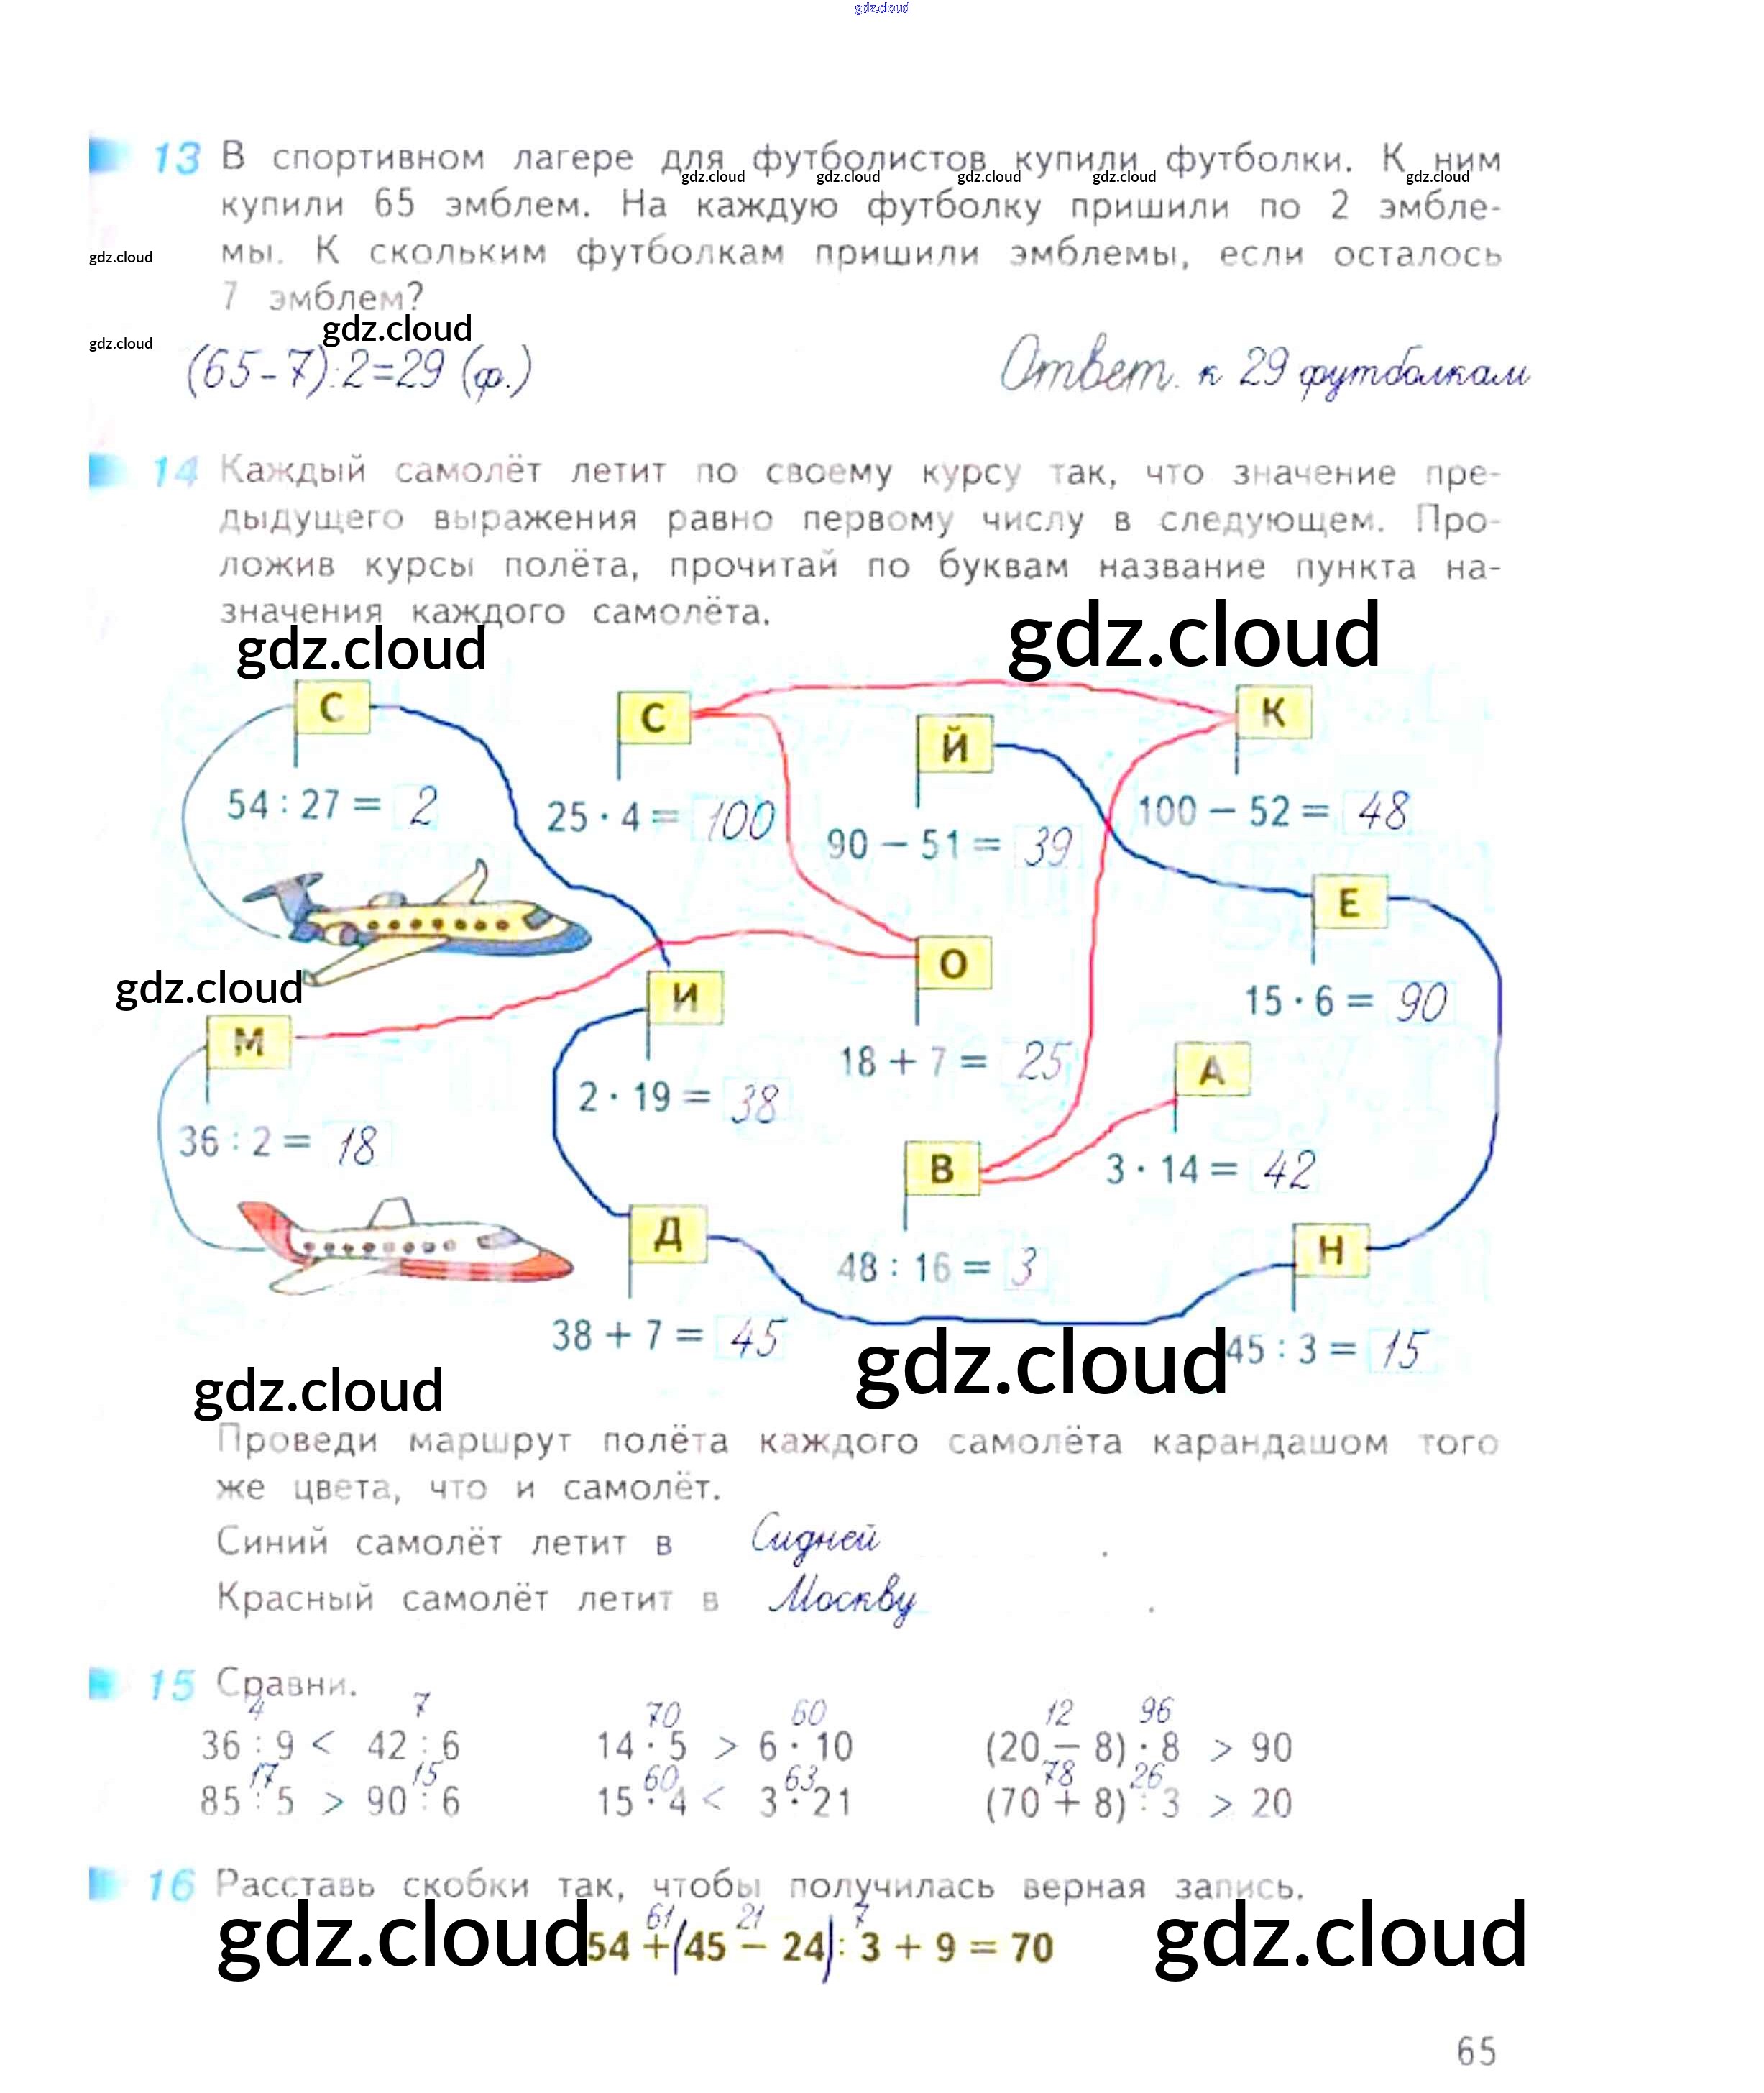 gdz.cloud
13 В спортивном лагере для футболистов купили футболки. К ним
gdz.cloud gdz.cloud gdz.cloud gdz.cloud gdz.cloud
купили 65 эмблем. На каждую футболку пришили по 2 эмбле-
мы. К скольким футболкам пришили эмблемы, если осталось
gdz.cloud
7 эмблем?
gdz.cloud
gdz.cloud
(65-7):2=29 (ф.) Ответ. к 29 футболкам
14 Каждый самолёт летит по своему курсу так, что значение пре-
дыдущего выражения равно первому числу в следующем. Про-
ложив курсы полёта, прочитай по буквам название пункта на-
значения каждого самолёта.
gdz.cloud gdz.cloud
С С Й К
54 : 27 = 2 25 · 4 = 100 90 − 51 = 39 100 − 52 = 48
Е
О
15 · 6 = 90
gdz.cloud
И
М
18 + 7 = 25
А
2 · 19 = 38
36 : 2 = 18
В
3 · 14 = 42
Д
Н
48 : 16 = 3
38 + 7 = 45
45 : 3 = 15
gdz.cloud
gdz.cloud
Проведи маршрут полёта каждого самолёта карандашом того
же цвета, что и самолёт.
Синий самолёт летит в Сидней .
Красный самолёт летит в Москву .
15 Сравни.
4 7 70 60 12 96
36 : 9 < 42 : 6 14 · 5 > 6 · 10 (20 − 8) · 8 > 90
17 15 60 63 78 26
85 : 5 > 90 : 6 15 · 4 < 3 · 21 (70 + 8) : 3 > 20
16 Расставь скобки так, чтобы получилась верная запись.
61 21 7
gdz.cloud 54 + (45 − 24) : 3 + 9 = 70 gdz.cloud
65